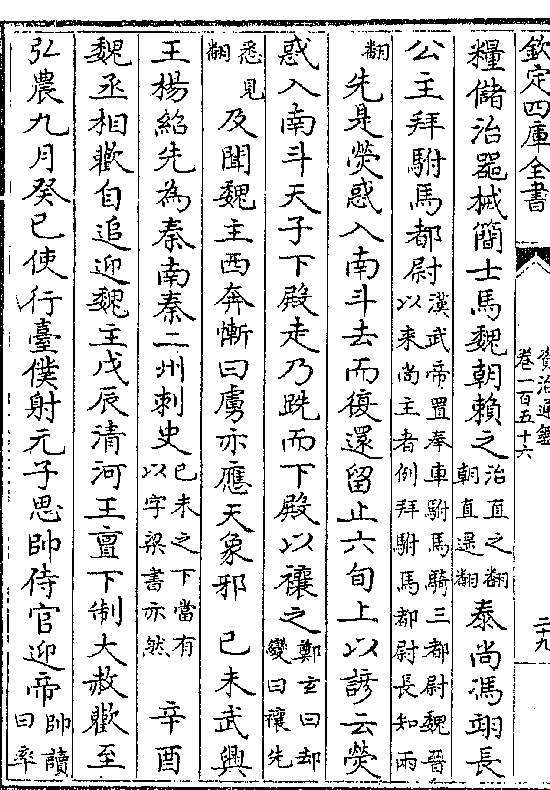 欽定四庫全書
資治通鑑
卷一百五十六
二十九
糧儲治器械簡士馬魏朝賴之治直之翻朝直遥翻泰尚馮翊長
公主拜駙馬都尉漢武帝置奉車駙馬騎三都尉魏晉以來尚主者例拜駙馬都尉長知兩
翻先是熒惑入南斗去而復還留止六旬上以諺云熒
惑入南斗天子下殿走乃跣而下殿以禳之鄭玄曰却變曰禳先
悉見翻及聞魏主西奔慙曰虜亦應天象邪　已未武興
王楊紹先為秦南秦二州刺史已未之下當有以字梁書亦然　辛酉
魏丞相歡自追迎魏主戊辰清河王亶下制大赦歡至
弘農九月癸巳使行臺僕射元子思帥侍官迎帝帥讀曰率